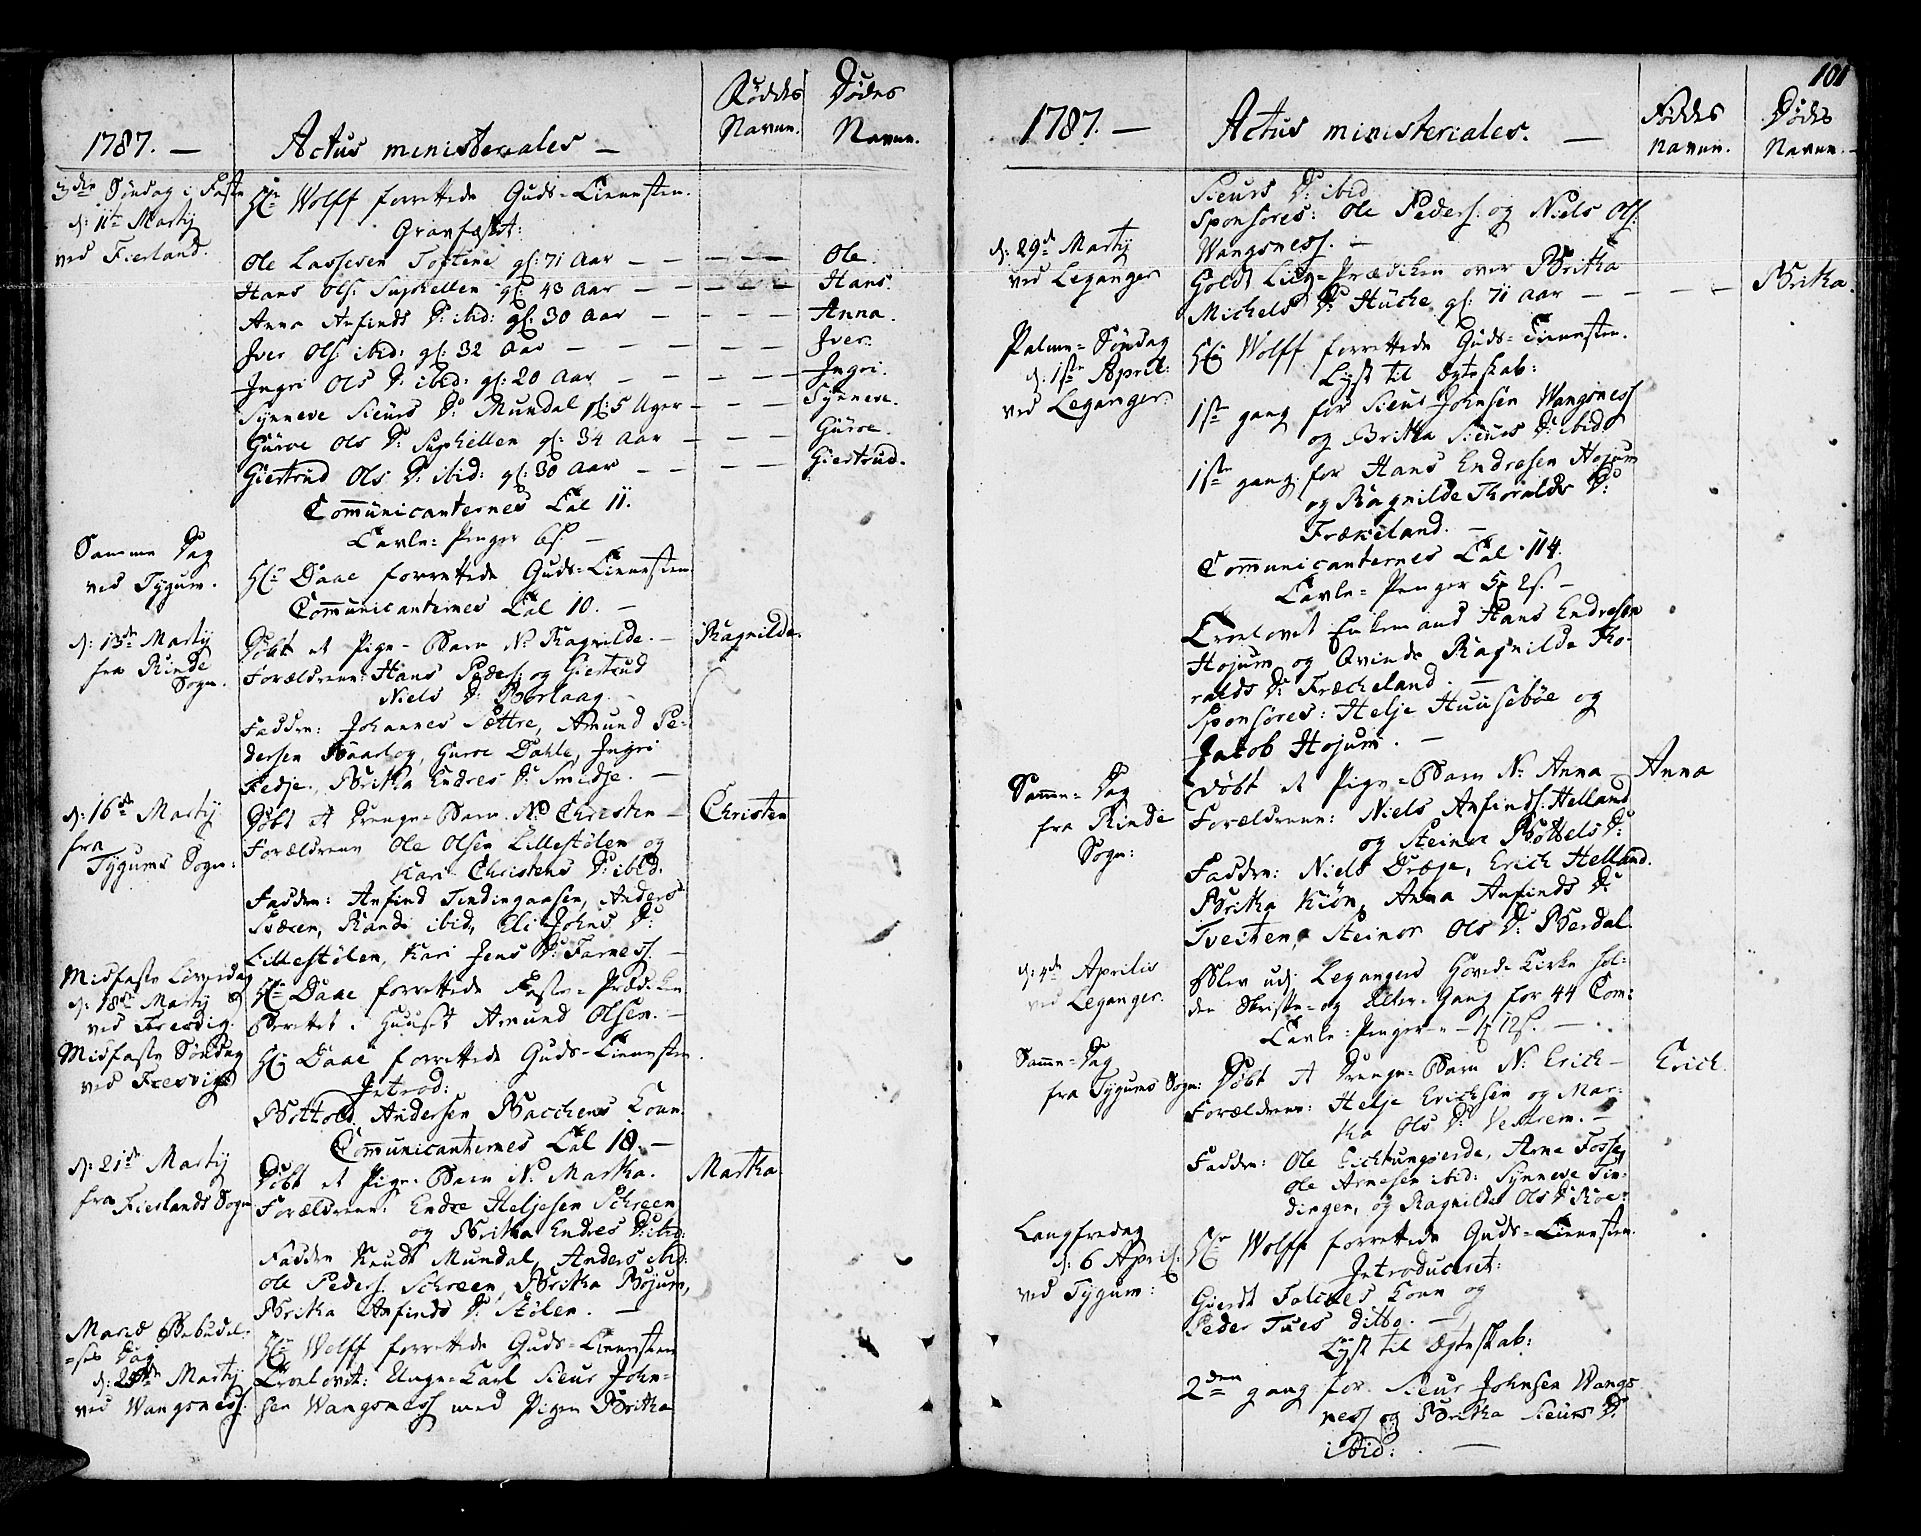 1787. — Actus ministeriales — Føddes Navne. Dødes Navne.
3die Søndag i Faste
d: 11te Martij
ved Fierland.
Hr Wolff forrettede Guds-Tienesten.
Gravfæst:
Ole Lassesen gl: 71 Aar — — — — Ole.
Hans Ols: Suphellen gl: 43 Aar — — — — Hans.
Anna Anfinds D: ibid: gl: 30 Aar — — — — Anna.
Iver Ols: ibid: gl: 32 Aar — — — — Iver.
Ingri Ols D: ibid: gl: 20 Aar — — — — Ingri.
Synneve Sieurs D: Mundal gl: 5 Uger — — — Synneve.
Guroe Ols D: Suphellen gl: 34 Aar — — — Guroe.
Giertrud Ols D: ibid: gl: 30 Aar — — — — Giertrud.
Communicanternes Tal 11.
Tavle-Penger 6s. —
Samme Dag
ved Tygum.
Hr Daae forrettede Guds-Tienesten
Communicanternes Tal 10. —
d: 13de Martij
fra Rinde
Sogn.
Døbt et Pige-Barn N: Ragnilde. — Ragnilde
Forældrene: Hans Peders: og Giertrud
Niels D: Borlaag. —
Faddre: Johannes Sættre, Amund Pe-
dersen, Guroe Dahle, Ingri
Fedje, Britha Endres D: Smedje. —
d: 16de Martij
fra
Tygums Sogn:
Døbt et Drenge-Barn N: Christen — Christen
Forældrene Ole Olsen Lillestølen og
Kari Christens D: ibid.
Faddre: Anfind Tendingaasen, Anders
Randi ibid, Eli Johns D:
Lillestølen, Kari Jens D: Farness. —
Midfaste Løverdag
ved Fresvig.
Hr Daae forrettede Faste-Prædiken
Berettet i Huuset Amund Olsen. —
Midfaste Søndag
ved Fresvig
Hr Daae forrettede Guds-Tienesten.
Introd:
Bottold Andersen Bacchens Kone
Communicanternes Tal 18. —
d: 21de Martij
fra Fierlands Sogn
Døbt et Pige-Barn N: Martha. Martha
Forældrene: Endre Heljesen Schreen
og Britha Endres D: ibid:
Faddre Knudt Mundal, Anders ibid:
Ole Peders: Schreen, Britha Bøjum,
Britha Anfinds D: Stølen. —
Mariæ Bebudel-
ses Dag
ved Wangsness.
Hr Wolff forrettede Guds-Tienesten
Troelovet: Unge-Karl Sieur John-
sen Wangsness med Pigen Britha
101
1787. — Actus ministeriales. — Føddes Navne. Dødes Navne. —
Sieurs D: ibid
Sponsores: Ole Peders: og Niels Ols:
Wangsness. —
d: 29de Martij
ved Leganger
Holdt Liig-Prædiken over Britha
Michels D: Huche gl: 71 Aar — — — — Britha.
Palme-Søndag
d: 1ste April:
ved Leganger.
Hr Wolff forrettede Guds-Tienesten.
Lyst til Ægteskab:
1ste gang for Sieur Johnsen Wangsness
og Britha Sieurs D: ibid
1ste gang for Hans Endresen Hojum
og Ragnilde Thoralds D:
Frækeland. —
Communicanternes Tal 114.
Tavle-Penger 5 2s. —
Troelovet Enkemand Hans Endresen
Hojum og Qvinde Ragnilde Tho-
ralds D: Frækeland. —
Sponsores: Helje Huusebøe og
Jacob Hojum. —
Samme-Dag
fra Rinde
Sogn:
Døbt et Pige-Barn N: Anna — Anna
Forældrene: Niels Anfinds: Helland
og Steinor Bottels D:
Faddre: Niels Dræge, Erich Helland.
Britha Kiøn, Anna Anfinds D:
Tveiten, Steinor Ols D: Berdal.
d: 4de Aprilis
ved Leganger.
Blev udj Legangers Hoved-Kirke hol-
den Skrifte- og Alter-Gang for 44 Com:
Tavle-Penger — 12s. —
Samme-Dag
fra Tygums Sogn:
Døbt et Drenge-Barn N: Erich — Erich.
Forældrene: Helje Erichsen og Mar-
tha Ols D: Vestrem. —
Faddre: Ole Arne Fosse,
Ole Arnesen ibid: Synneve Tin-
dingen, og Ragnilde Ols D: Roe:
Langfredag
d: 6 April:
ved Tygum:
Hr Wolff forrettede Guds-Tienesten.
Introduceret:
Gierdt Falches Kone og
Peder Tues ditto. —
Lyst til Ægteskab:
2den gang for Sieur Johnsen Wangs
ness og Britha Sieurs D:
ibid: —